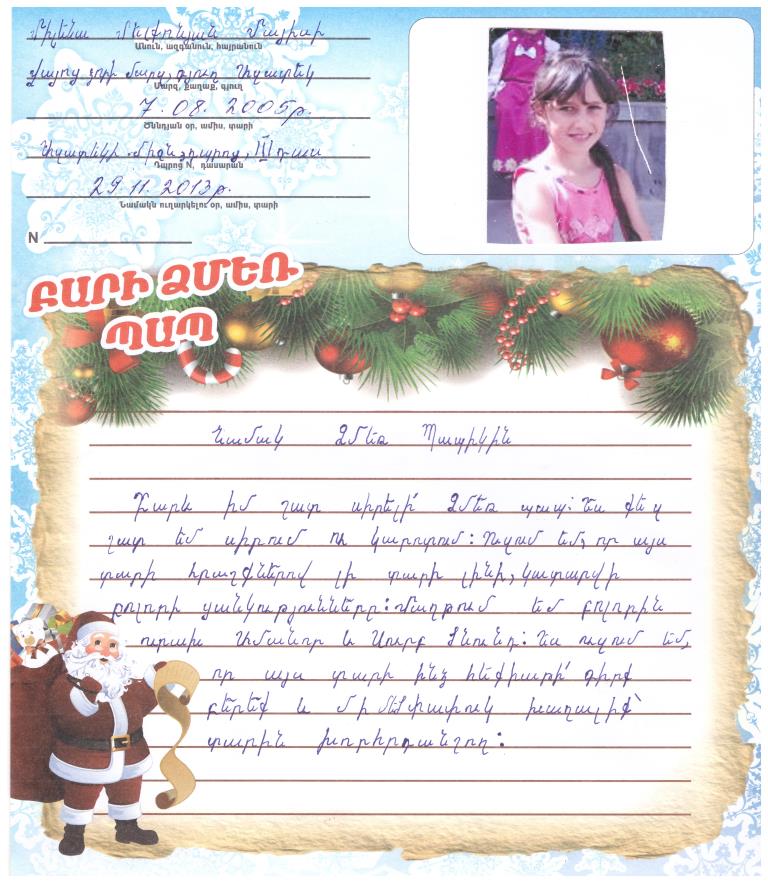 Միլենա Մելքոնյան Մայիսի
Անուն, ազգանուն, հայրանուն
Վայոց ձորի մարզ, գյուղ Ազատեկ
Մարզ, քաղաք, գյուղ
7. 08. 2005թ.
Ծննդյան օր, ամիս, տարի
Ազատեկի միջն. դպրոց, III դաս
Դպրոց N, դասարան
29. 11. 2013թ.
Նամակն ուղարկելու օր, ամիս, տարի
N
ԲԱՐԻ ՁՄԵՌ
ՊԱՊ
Նամակ Ձմեռ Պապիկին
Բարև իմ շատ սիրելի՛ Ձմեռ պապ: Ես քեզ
շատ եմ սիրում ու կարոտում: Ուզում եմ, որ այս
տարի հրաշքներով լի տարի լինի, կատարվի
բոլորի ցանկությունները: Մաղթում եմ բոլորին
ուրախ Ամանոր և Սուրբ Ծնունդ: Ես ուզում եմ,
որ այս տարի ինձ հեքիաթի՛ գիրք
բերեք և մի մեծ փափուկ խաղալիք՝
տարին խորհրդանշող: